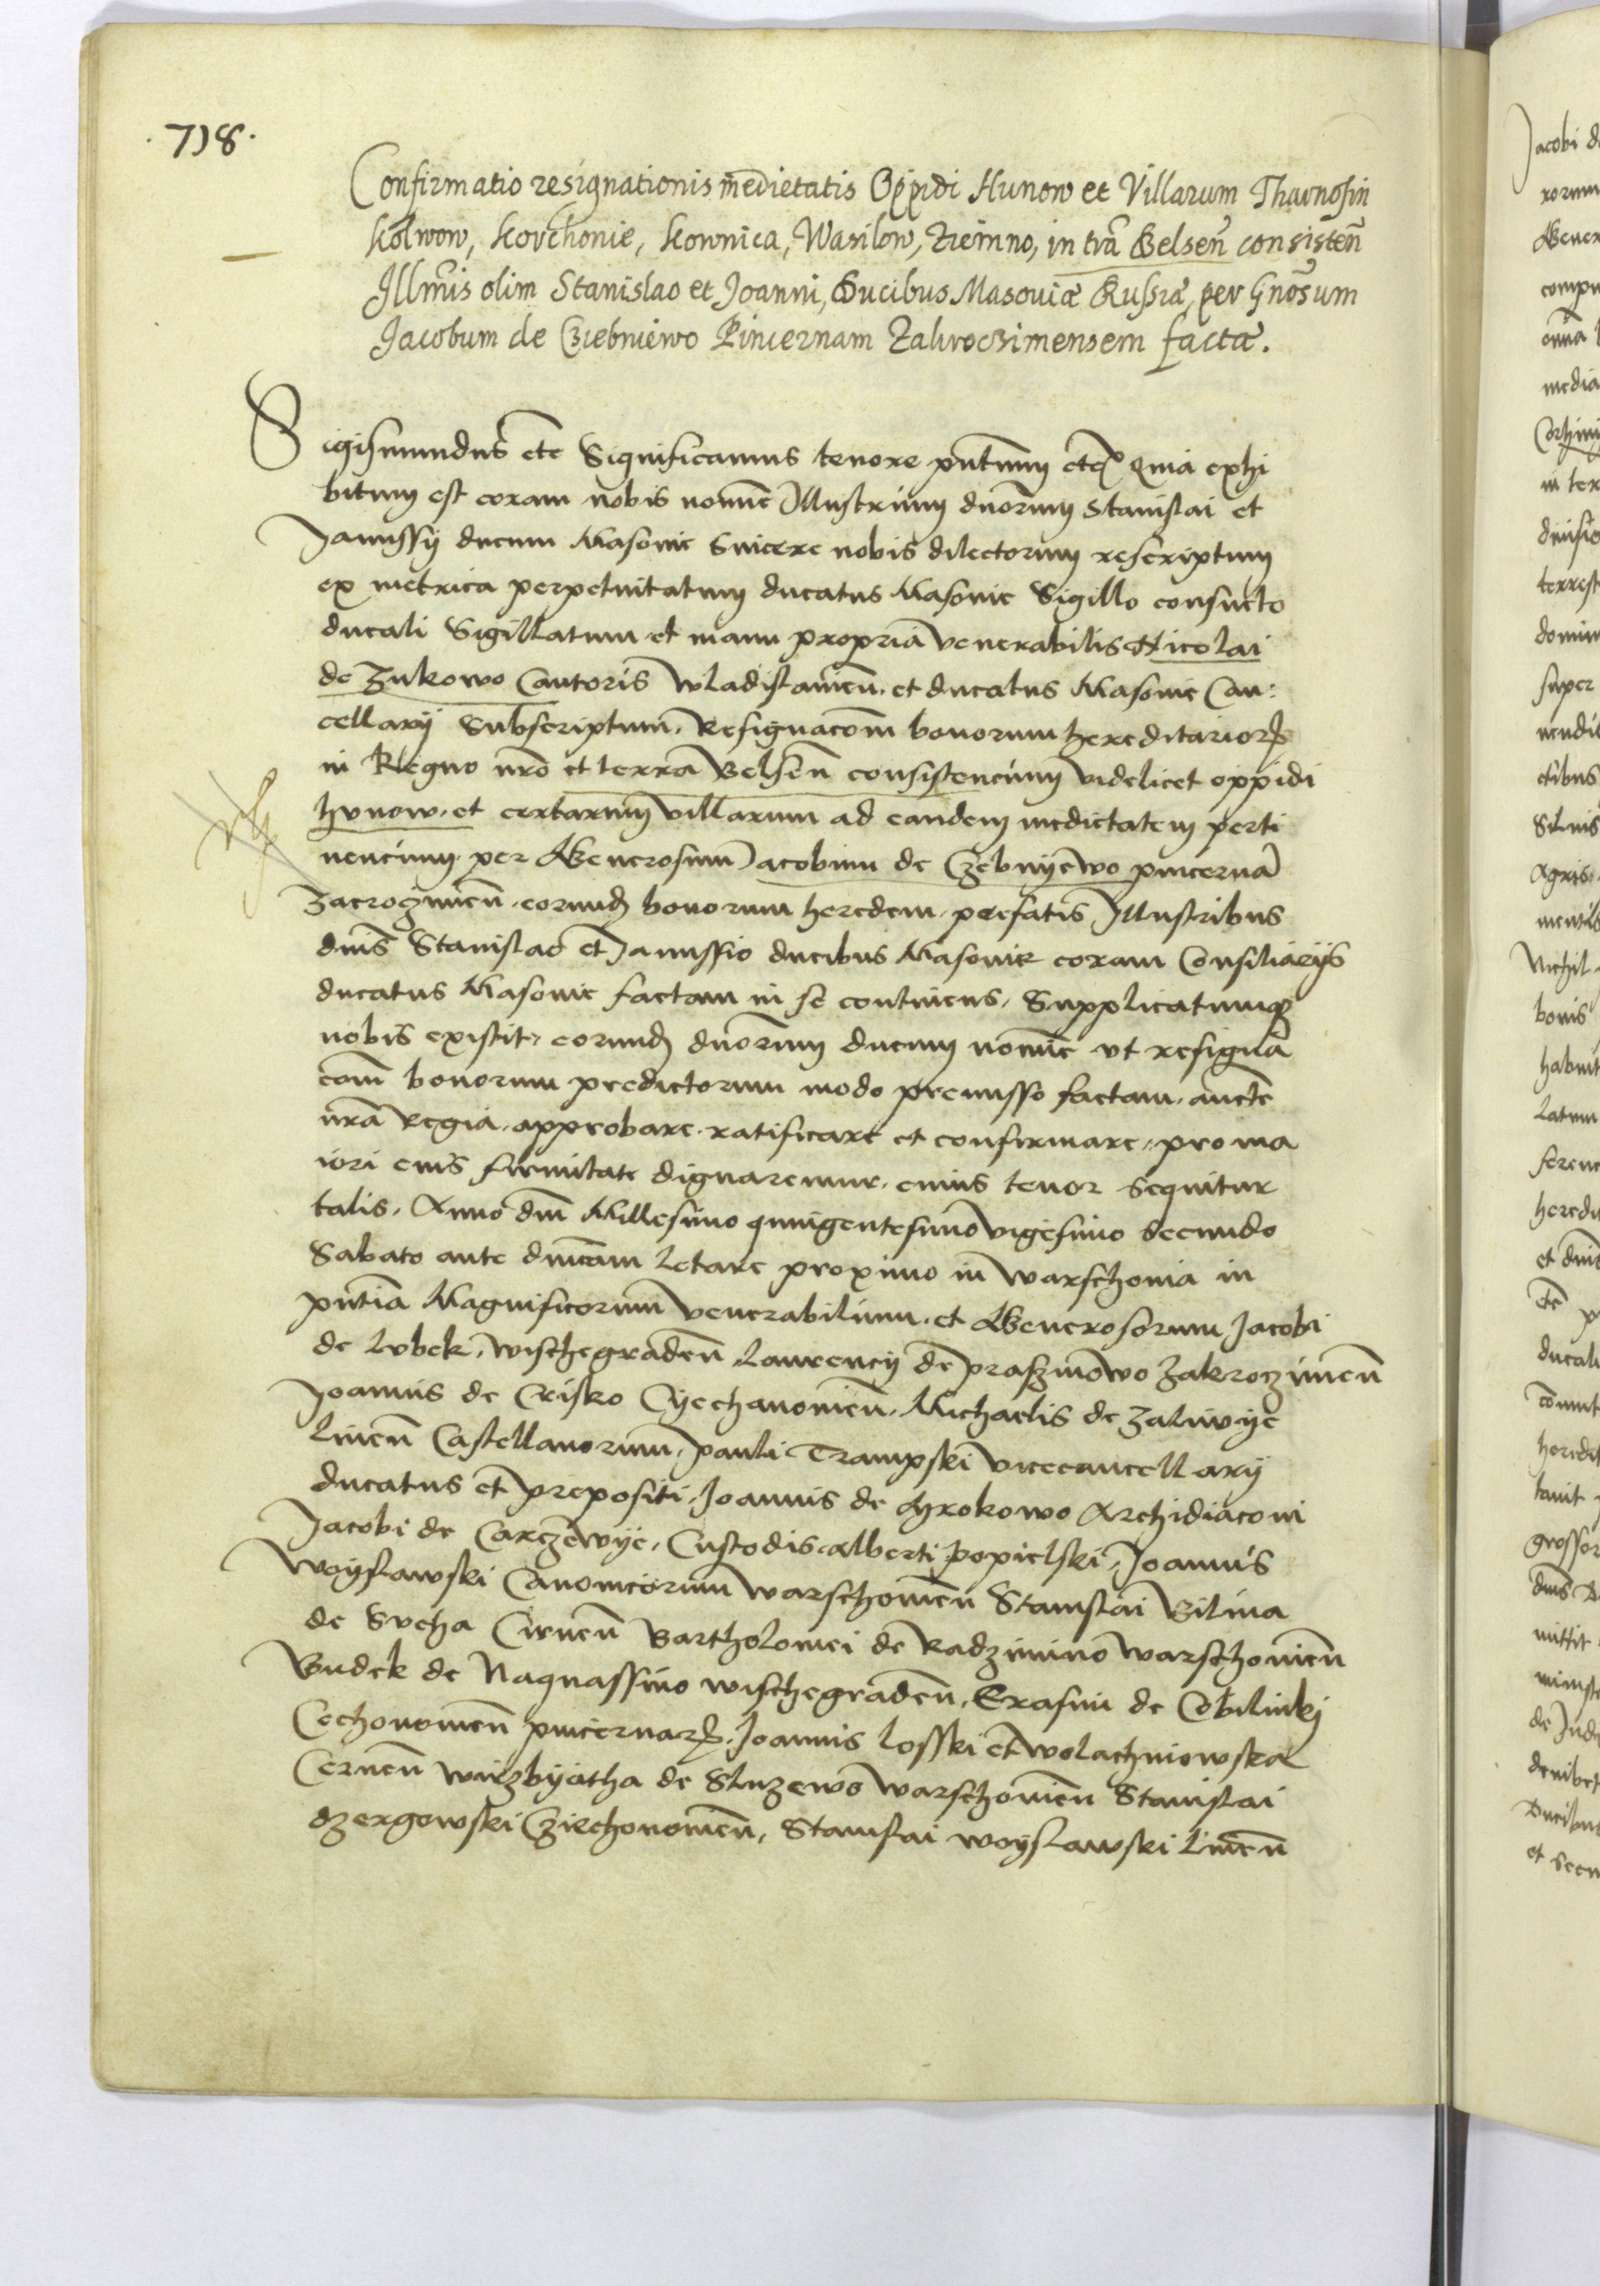 .718.
Confirmatio resignationis medietatis Oppidi Hunow et Villarum Tharnosin
Kolwow, Kovchonie, Kownica, Wasilow, Ziemno, in tra Belsen consisten
Illmis olim Stanislao et Joanni, Ducibus Masoviæ Russiæ, per Gnosum
Jacobum de Cziebniewo Pincernam Zakroczimensem factæ.
Sigismundus etc Significamus tenore pntium etc Quia exhi
bitum est coram nobis nomine Illustrium dnorum Stanislai et
Janussij ducum Masovie Sincere nobis dilectorum rescriptum
ex metrica perpetuitatum ducatus Masovie Sigillo consueto
ducali Sigillatum et manu propria venerabilis Nicolai
de Zukowo Cantoris Wladislavien. et ducatus Masovie Can:
cellarij Subscriptum, Resignacom bonorum hereditarior
in Regno nro et terra Belsen consistencium videlicet oppidi
hvnow. et certarum villarum ad eandem medietatem perti
nencium. per Generosum Jacobum de Czebnyewo pincerna
Zacrogimien. eorund bonorum heredem. prefatis Illustribus
dnis Stanislao et Janussio ducibus Masovie coram Consiliarijs
ducatus Masovie factam in se continens. Supplicatumq
nobis existit. eorund dnorum ducum nomine ut resigna
com bonorum predictorum modo premisso factam. aucte
nra Regia. approbare. ratificare et confirmare. pro ma
iori eius firmitate dignaremur. cuius tenor sequitur
talis. Anno dni Millesimo quingentesimo vigesimo secundo
Sabato ante dnicam Letare proximo in Warschovia in
pntia Magnificorum venerabilium. et Generosorum Jacobi
de Lvbek. Wischegraden. Laurencij de Praszmowo Zakroczimen
Joannis de Crisko Cyechanovien. Michaelis de Zaliwye
Livien Castellanorum. Pauli Trampski vicecancellarij
ducatus et prepositi. Joannis de Mrokowo Archidiaconi
Jacobi de Carczewye. Custodis. Alberti Popielski. Joannis
Woyslawski Canonicorum Warschovien Stanislai Bilina
de Svcha Cirnen Bartholomei de Radzimino Warschovien
Budek de Naqnassino Wischegraden. Erasmi de Cobilnki
Cechonovien pincernar. Joannis Losski et Wolachniowska
Cernen Wirzbyatha de Sluzewo Warschovien Stanislai
dzergowski Cziechonovien. Stanislai Woyslawski Livien